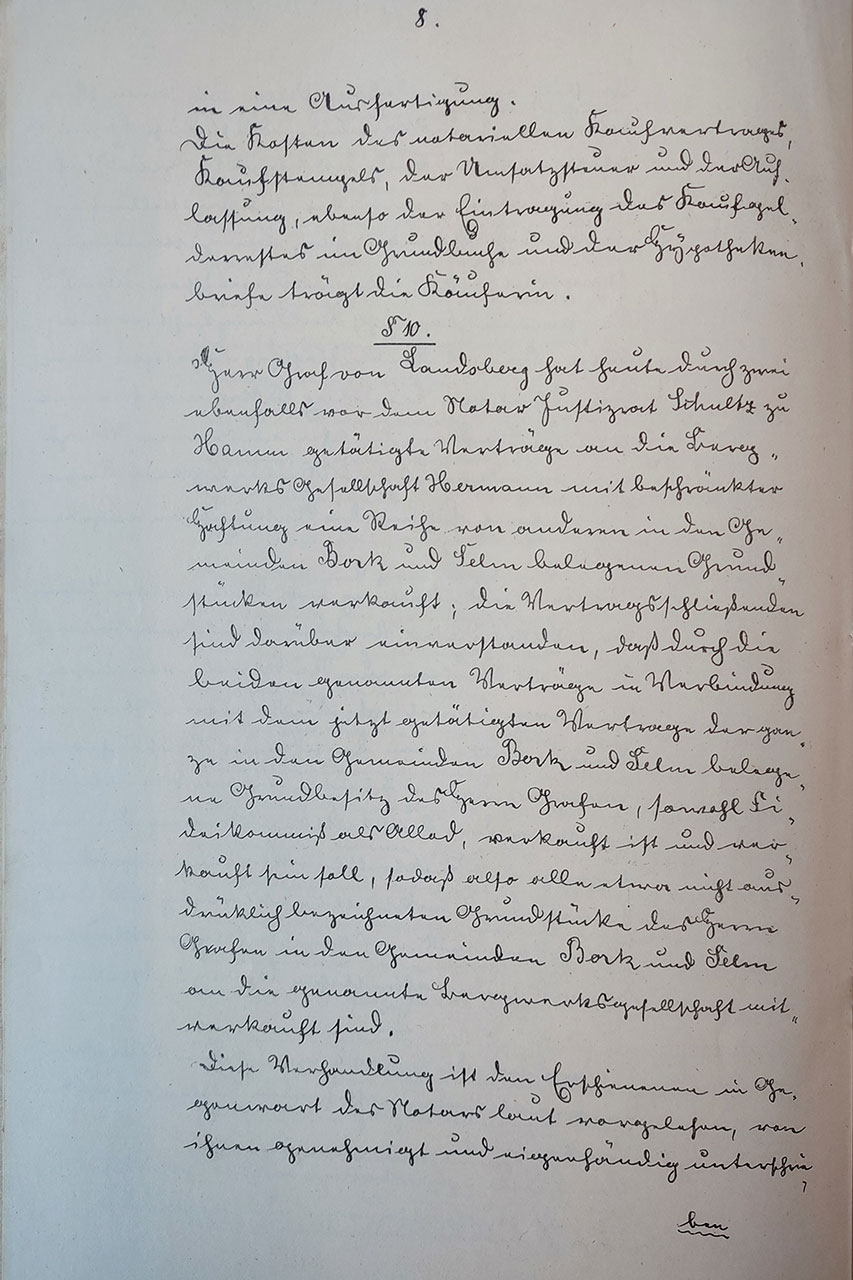 8.
in eine Ausfertigung.
Die Kosten des notariellen Kaufvertrages,
Kaufstempels, der Umsatzsteuer und der Auf„
lassung, ebenso der Eintragung des Kaufgel„
derrestes im Grundbuche und der Hypotheken„
briefe trägt die Käuferin.
§ 10.
Herr Graf von Landsberg hat heute durch zwei
ebenfalls vor dem Notar Justizrat Schultz zu
Hamm getätigte Verträge an die Berg„
werks Gesellschaft Hermann mit beschränkter
Haftung eine Reihe von anderen in den Ge„
meinden Bork und Selm belegenen Grund„
stücken verkauft; die Vertragsschließenden
sind darüber einverstanden, daß durch die
beiden genannten Verträge in Verbindung
mit dem jetzt getätigten Vertrage der gan„
ze in den Gemeinden Bork und Selm belege„
ne Grundbesitz des Herrn Grafen, sowohl Fi„
deikommiß als Allod, verkauft ist und ver„
kauft sein soll, sodaß also alle etwa nicht aus„
drüklich bezeichneten Grundstücke des Herrn
Grafen in den Gemeinden Bork und Selm
an die genannte Bergwerksgesellschaft mit„
verkauft sind.
Diese Verhandlung ist den Erschienenen in Ge„
genwart des Notars laut vorgelesen, von
ihnen genehmigt und eigenhändig unterschrie„
ben